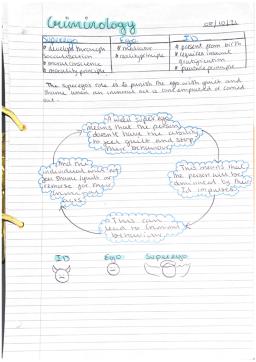 Criminology
08/10/21
Superego Ego ID
* develops through * mediator * present from birth
socialisation * reality principle * requires instant
* moral conscience gratification
* morality principle * pleasure principle
The superego's role is to punish the ego with guilt and
shame when an immoral act is contemplated or carried
out.
A weak superego
means that the person
doesn't have the ability
to feel guilt and stop
their behaviour
This means that
the person will be
dominated by their
Id impulses
This can
lead to criminal
behaviour
And the
individual will not
feel shame, guilt or
remorse for their
criminal
acts
ID Ego Superego